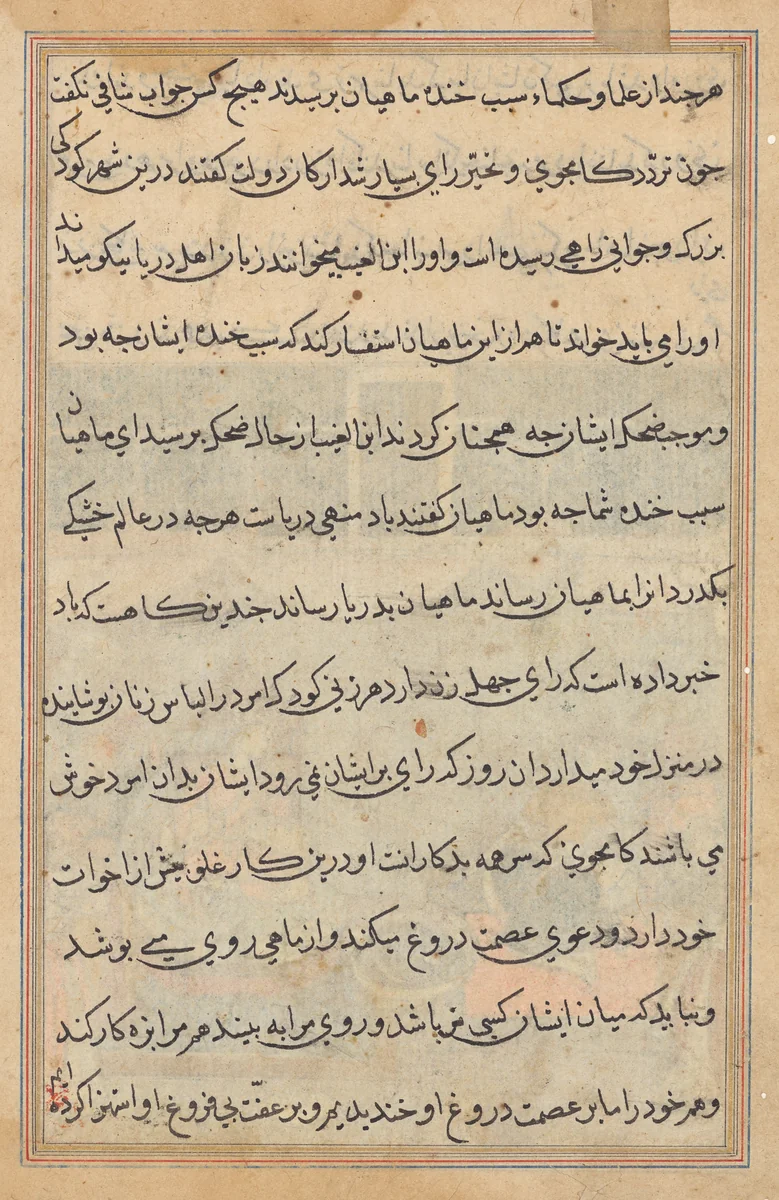 هرجند از علما و حکماء سبب خنده ماهیان برسیدند هیج کس جواب شافی نکفت
جون تردّد کامجوی و تحیّر رای بسیار شد ارکان دولت کفتند درین شهر کودکی
بزرک و جوانی راهی رسیده است و اورا ابن الغیب میخوانند زبان اهل دریا نیکو میداند
اورا می باید خواند تا هم از این ماهیان استفسار کند که سبب خنده ایشان جه بود
و موجب ضحک ایشان جه همجنان کردند ابن الغیب از حال ضحک برسید ای ماهیان
سبب خنده شما جه بود ماهیان کفتند باد منهی دریاست هرجه در عالم خشکی
بکذرد انرا بماهیان رساند ماهیان بدریا رساند جندین کاهست که باد
خبر داده است که رای جهل زن دارد هر زنی کودک امرد را لباس زنان بوشاینده
در منزل خود میدارد ان روز که رای بر ایشان نمی رود ایشان بدان امرد خوش
می باشند کامجوی که سر همه بدکارانست او درین کار غلو بیش از اخوات
خود دارد و دعوی عصمت دروغ میکند و از ماهی روی می بوشد
و نباید که میان ایشان کسی نر باشد و روی مرا به بیند هم مرا بزه کار کند
و هم خود را ما بر عصمت دروغ او خندیدیم و بر عفّت بی فروغ او استهزا کرده ایم